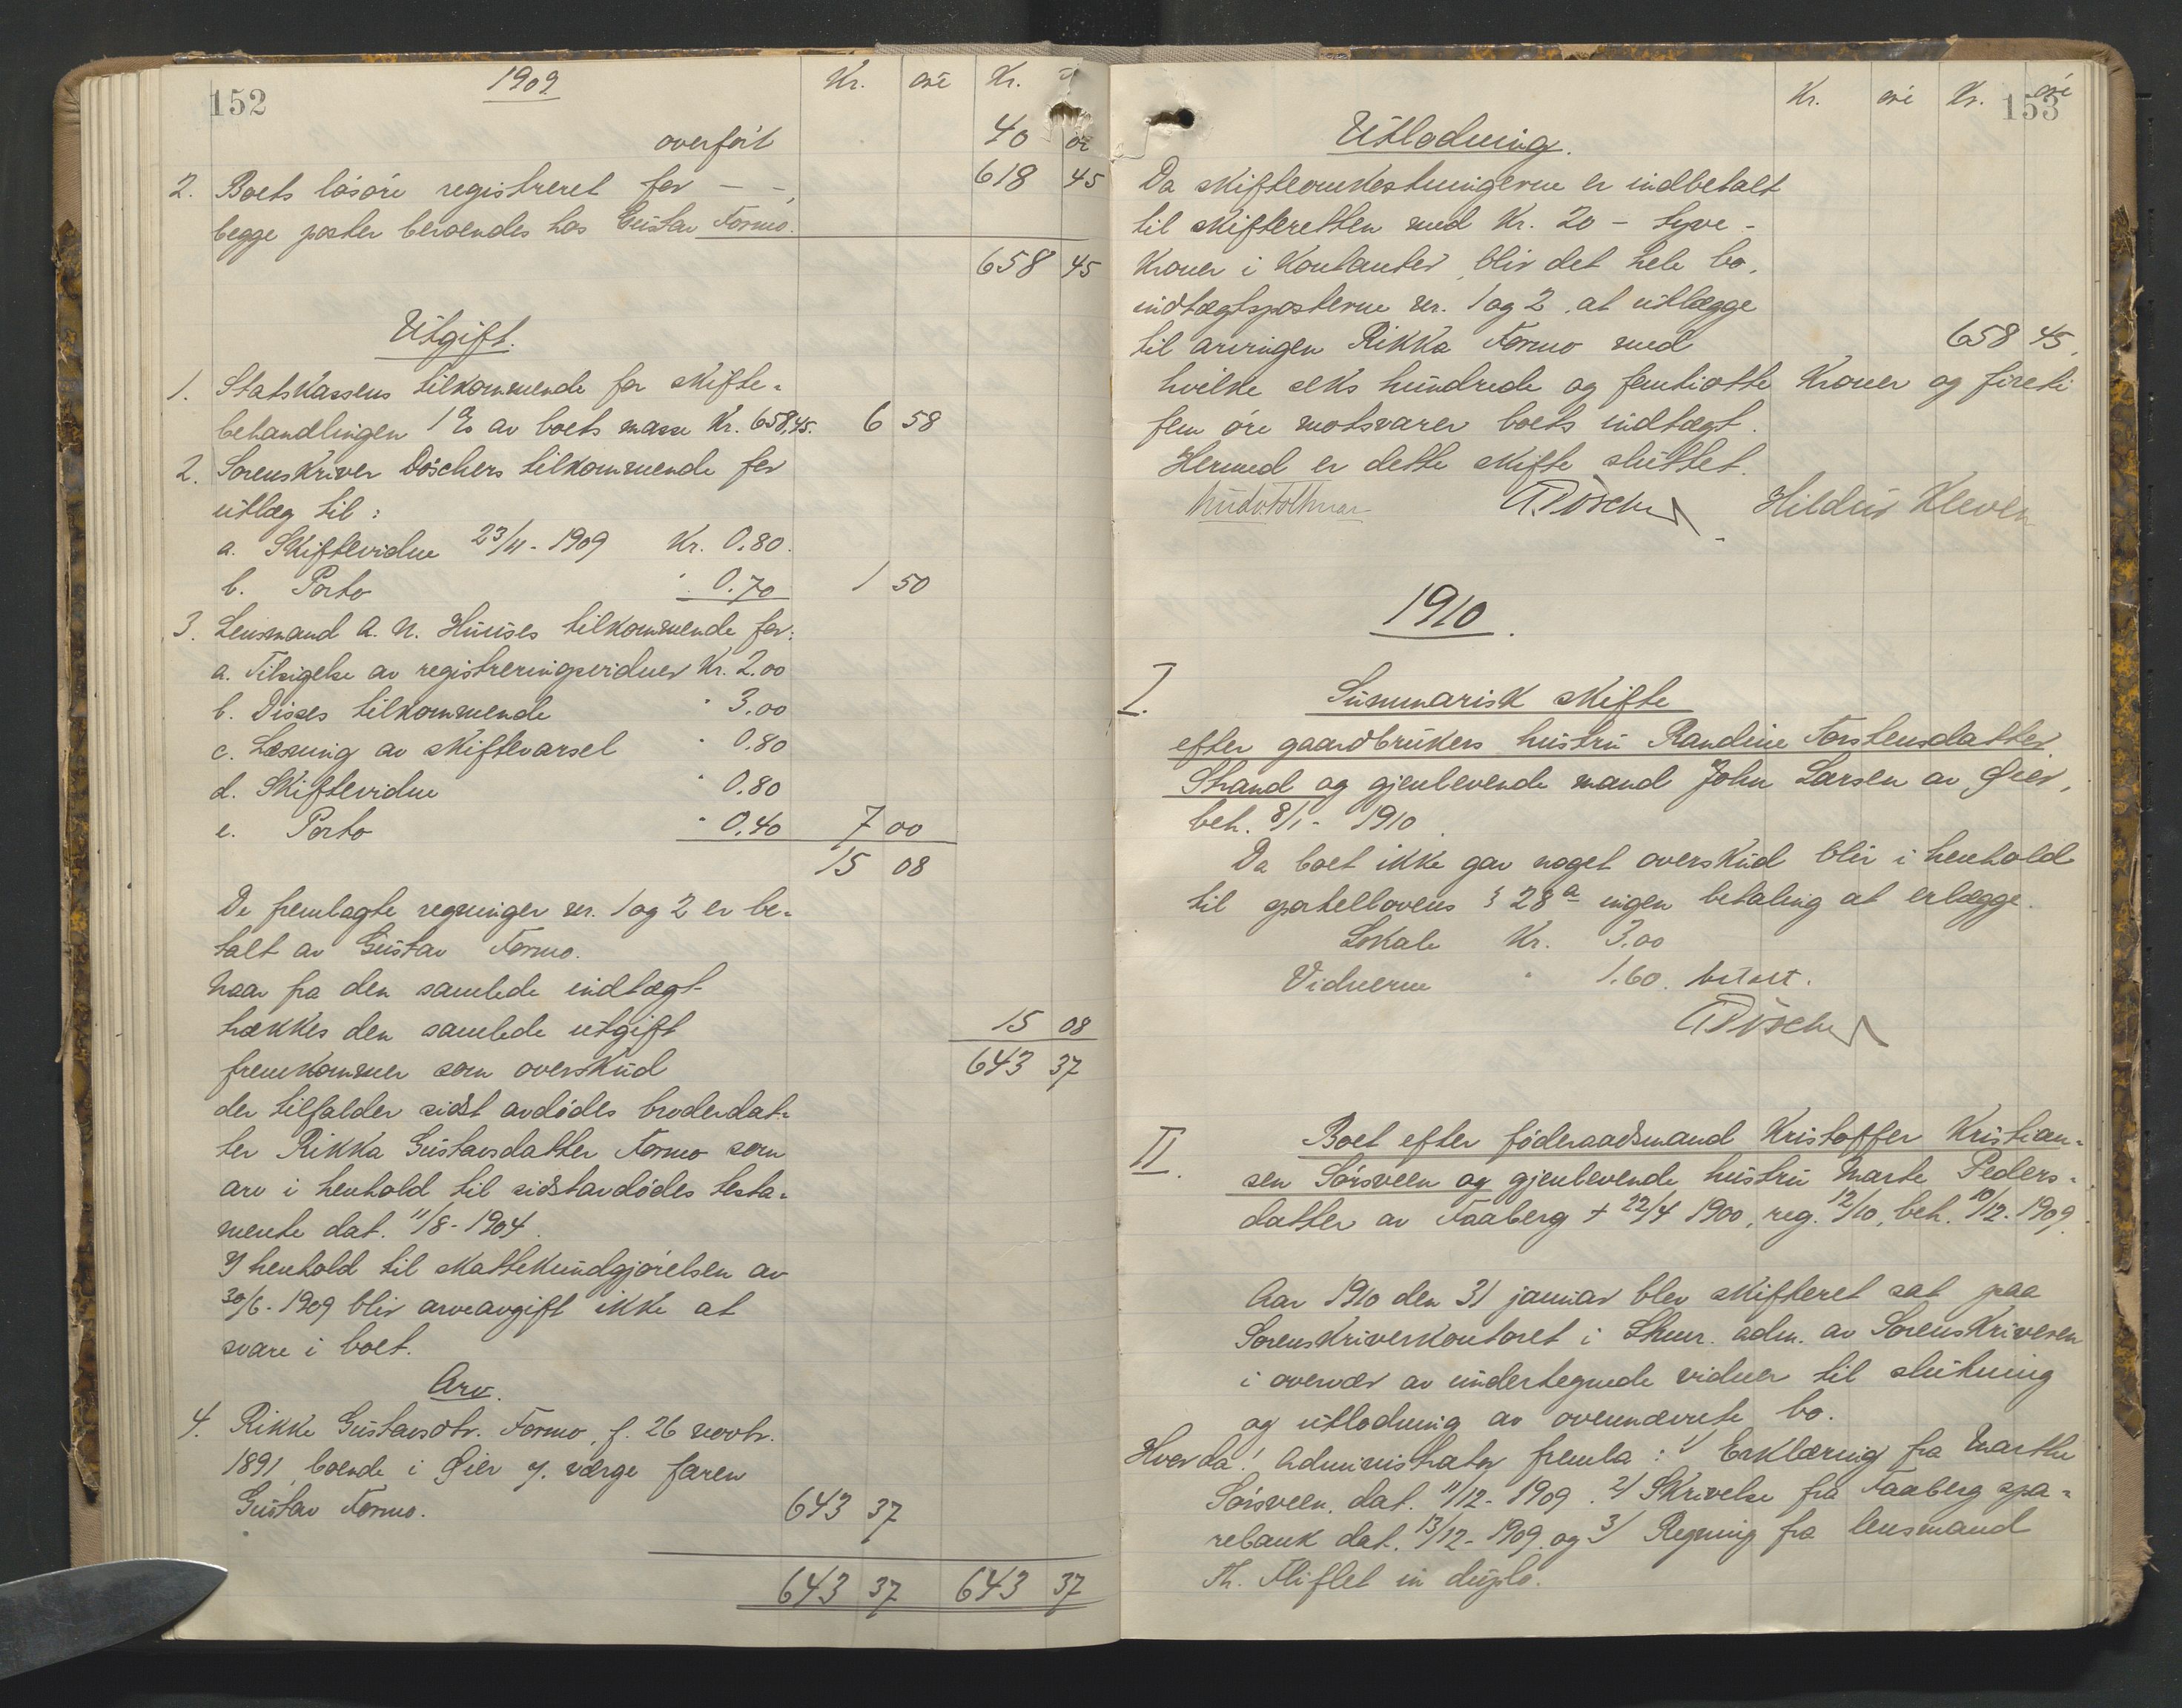 152
1909
Kr. øre Kr.
overført 40 00
2. Boets løsøre registreret for — — 618 45
begge poster beroendes hos Gustav Formo.
658 45
Utgift.
1. Statskassens tilkommende for skifte-
behandlingen 1 % av boets masse Kr. 658,45. 6 58
2. Sorenskriver Döschers tilkommende for
utlæg til:
a. Skiftevidne 23/11 - 1909 Kr. 0.80.
b. Porto " 0.70 1 50
3. Lensmand A. N. Huuses tilkommende for:
a. Tilsigelse av registreringsvidner Kr. 2.00
b. Disses tilkommende " 3.00
c. Læsning av skiftevarsel " 0.80
d. Skiftevidne " 0.80
e. Porto " 0.40 7 00
15 08
De fremlagte regninger nr. 1 og 2 er be-
talt av Gustav Formo.
Naar fra den samlede indtægt
trækkes den samlede utgift 15 08
fremkommer som overskud 643 37
der tilfalder sidst avdødes broderdat-
ter Rikka Gustavsdatter Formo som
arv i henhold til sidstavdødes testa-
mente dat. 11/8 - 1904.
I henhold til skattekundgjørelsen av
30/6 - 1909 blir arveavgift ikke at
svare i boet.
Arv.
4. Rikke Gustavsdtr. Formo, f. 26 novbr.
1891, boende i Øier y. værge faren
Gustav Formo. 643 37
643 37 643 37
Kr. øre Kr. øre
153
Utlodning.
Da skifteomkostningerne er indbetalt
til skifteretten med Kr. 20 - tyve -
Kroner i Kontanter, blir det hele bo,
indtægtsposterne nr. 1 og 2, at utlægge
til arvingen Rikka Formo med 658 45,
hvilke seks hundrede og femtiotte Kroner og firti
fem øre motsvarer boets indtægt.
Hermed er dette skifte sluttet.
Döscher Hildur Kleven
1910.
I. Summarisk skifte
efter gaardbrukers hustru Randine Torstensdatter
Strand og gjenlevende mand John Larsen av Øier,
beh. 8/1 - 1910.
Da boet ikke gav noget overskud blir i henhold
til sportellovens § 28 a ingen betaling at erlægge.
Lokale Kr. 3.00
Vidnerne " 1.60. betalt.
Döscher
II. Boet efter føderaadsmand Kristoffer Kristian-
sen Sørsveen og gjenlevende hustru Marte Peders-
datter av Faaberg + 22/4 1900, reg. 12/10, beh. 10/12 - 1909.
Aar 1910 den 31 januar blev skifteret sat paa
Sorenskriverkontoret i Lhmr. adm. av Sorenskriveren
i overvær av undertegnede vidner til slutning
og utlodning av ovennævnte bo.
Hvorda! Administrator fremla: 1/ Erklæring fra Marthe
Sørsveen, dat. 11/12 - 1909. 2/ Skrivelse fra Faaberg spa-
rebank dat. 13/12 - 1909. og 3/ Regning fra lensmand
Th. Fliflet in duplo.